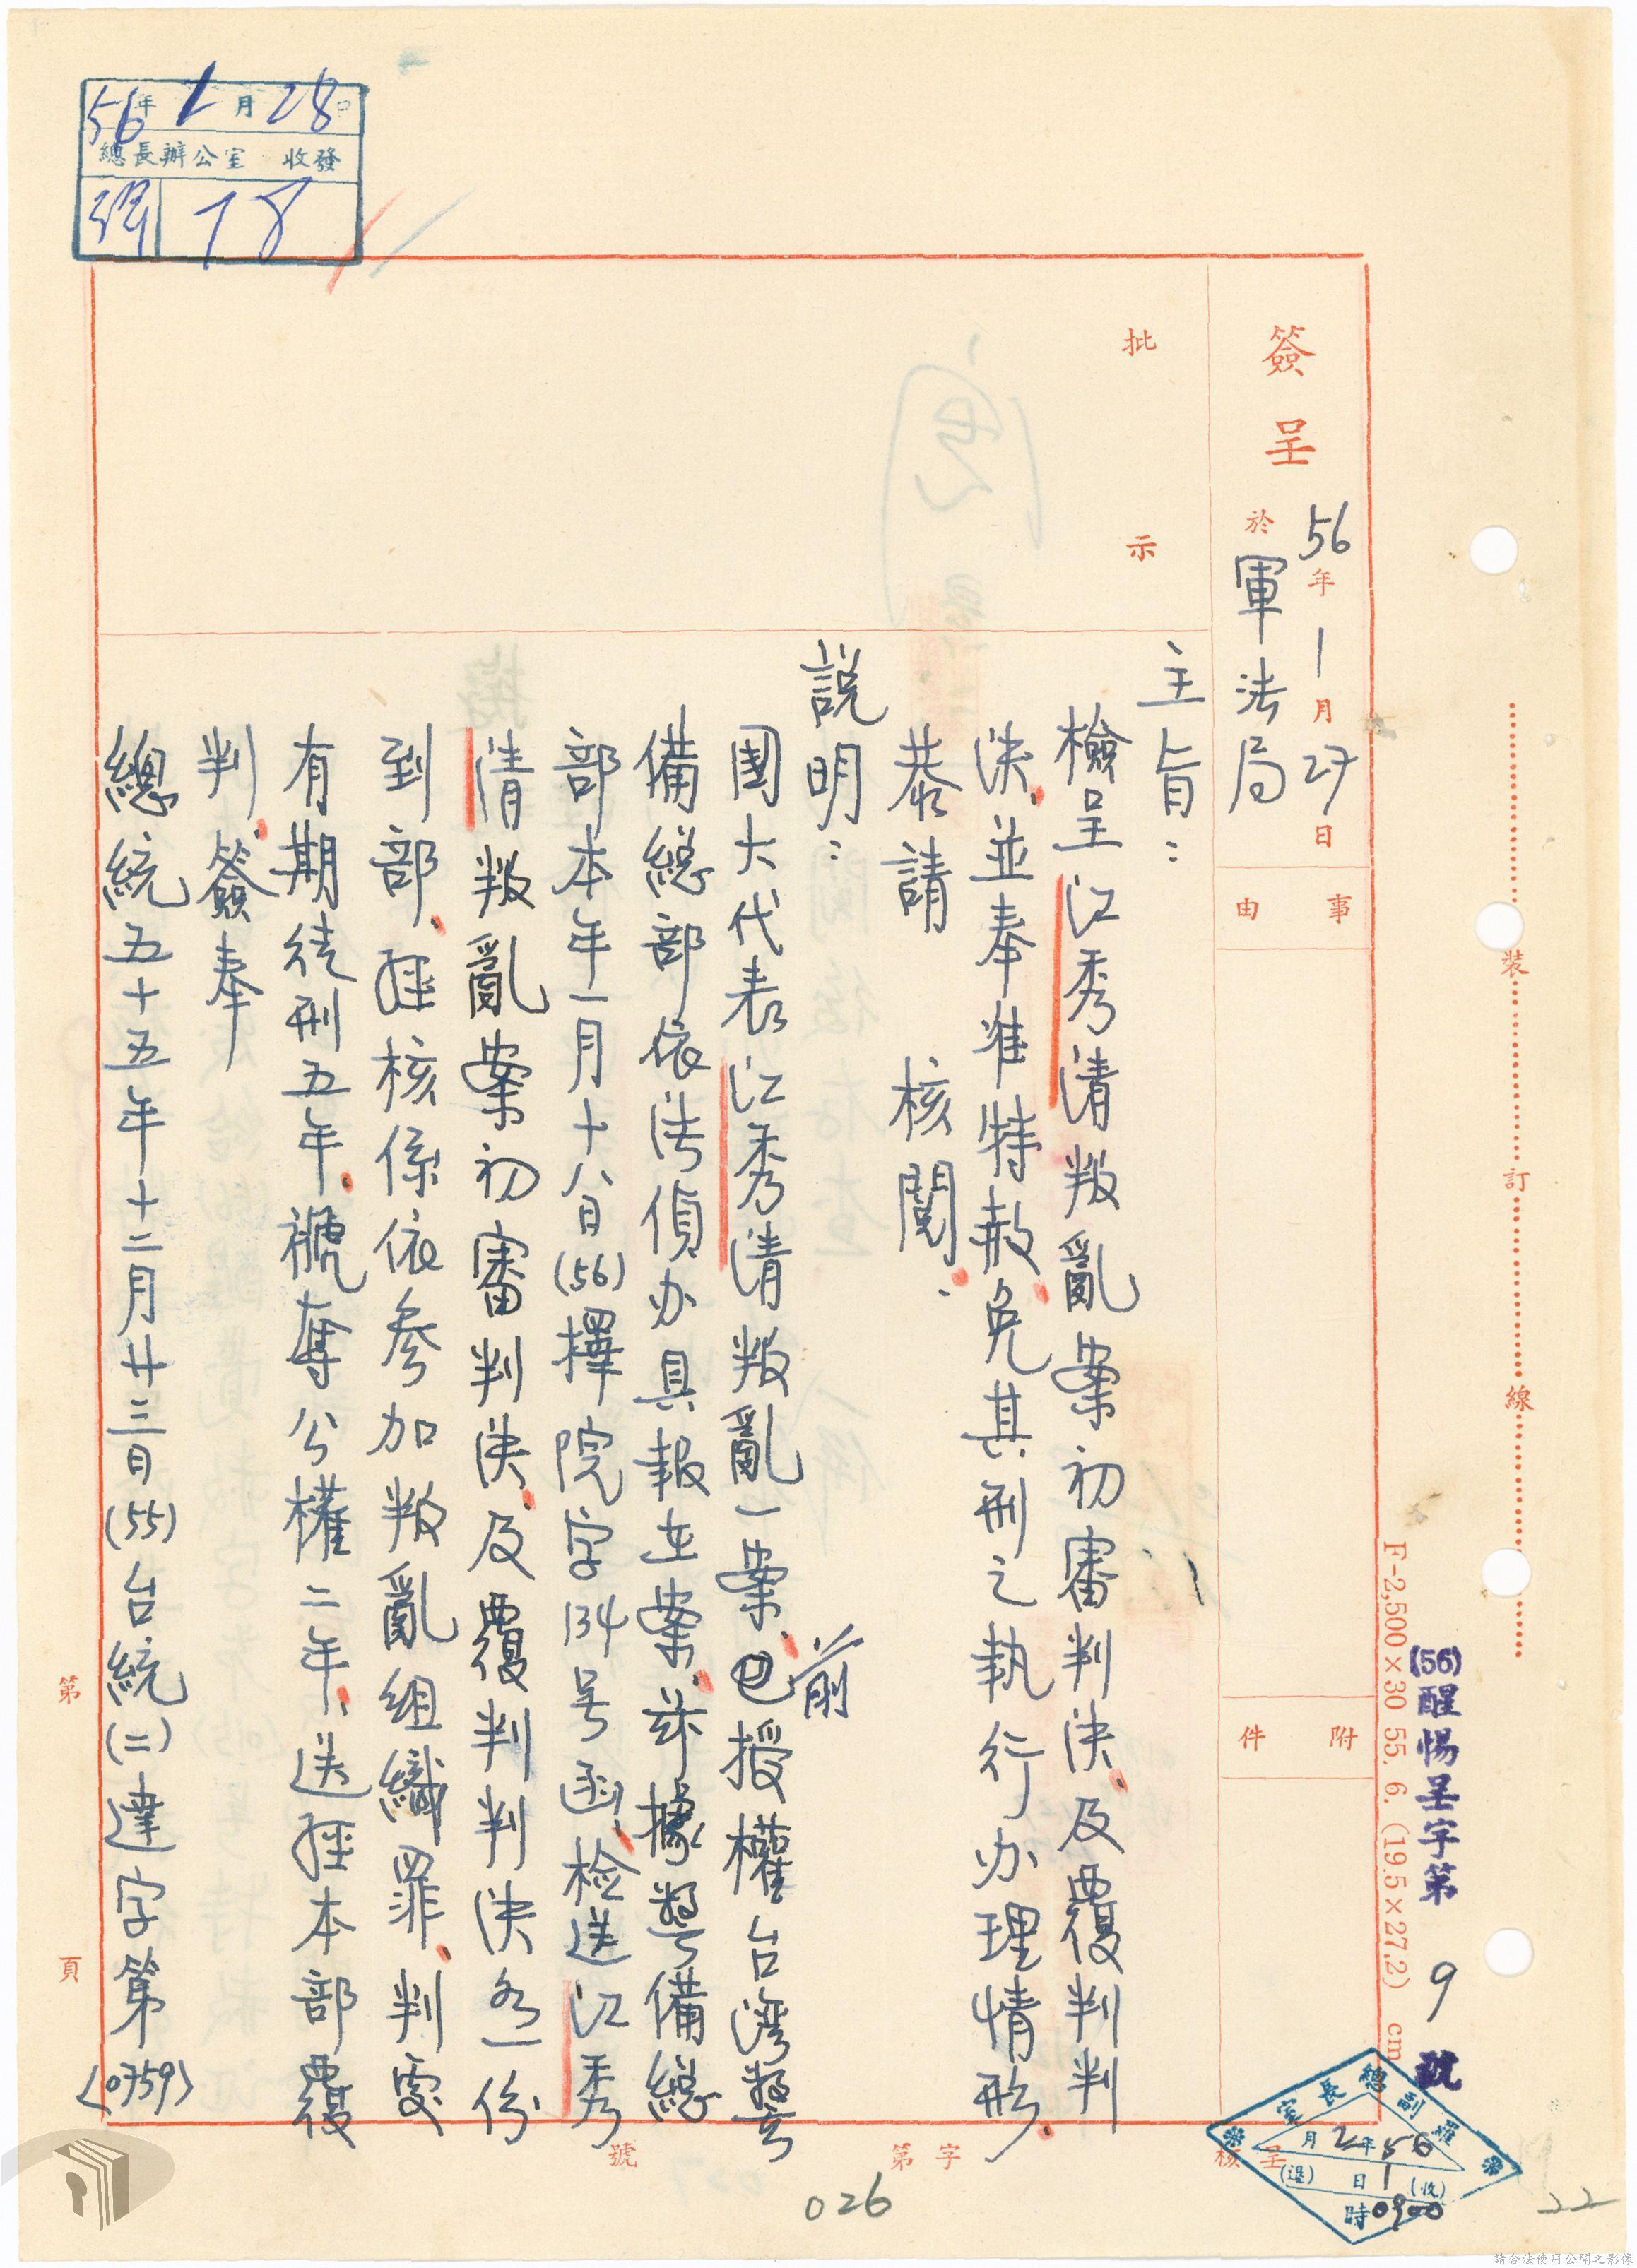 簽呈
56年1月27日
於軍法局
事由
附件
批示
主旨：
檢呈江秀清叛亂案初審判決、及覆判判
決、並奉准特赦免其刑之執行办理情形、
恭請　核閱、
說明：
國大代表江秀清叛亂一案、前已授權台灣警
備總部依法偵办具報在案、茲據警備總
部本年一月十八日(56)擇院字134号函、检送江秀
清叛亂案初審判決、及覆判判決各一份
到部、經核係依參加叛亂組織罪、判處
有期徒刑五年、褫奪公權二年、送經本部覆
判、簽奉
總統五十五年十二月廿三日(55)台統(二)達字第(0759)
第　頁
呈核　字第　號
裝訂線
F-2,500×30 55. 6. (19.5×27.2) cm
(56)醒惕呈字第 9 號
56年1月28日
總長辦公室 收發
78
羅副總長室
56年2月
(收) 1日 (退)
0900時
026
22
請合法使用公開之影像